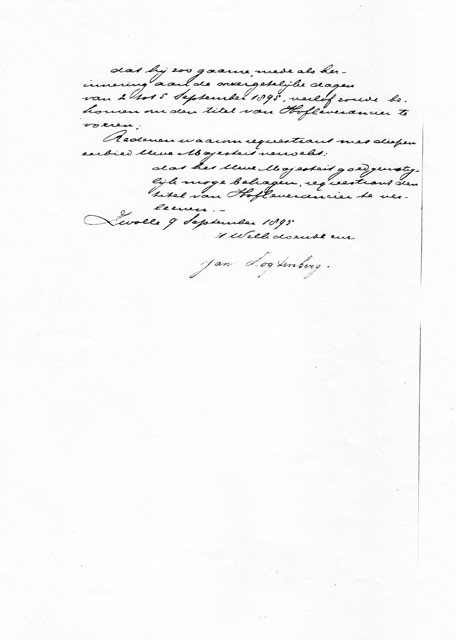 dat hij zoo gaarne, mede als her-
innering aan de onvergetelijke dagen
van 2 tot 5 September 1895, verlof zoude be-
komen om den titel van Hofleverancier te
voeren;
Redenen waarom requestrant met diepen
eerbied Uwe Majesteit verzoekt:
dat het Uwe Majesteit goedgunstig-
lijk moge behagen, requestrant den
titel van Hofleverancier te ver-
leenen.-
Zwolle 9 September 1895
't Welk doende enz
Jan